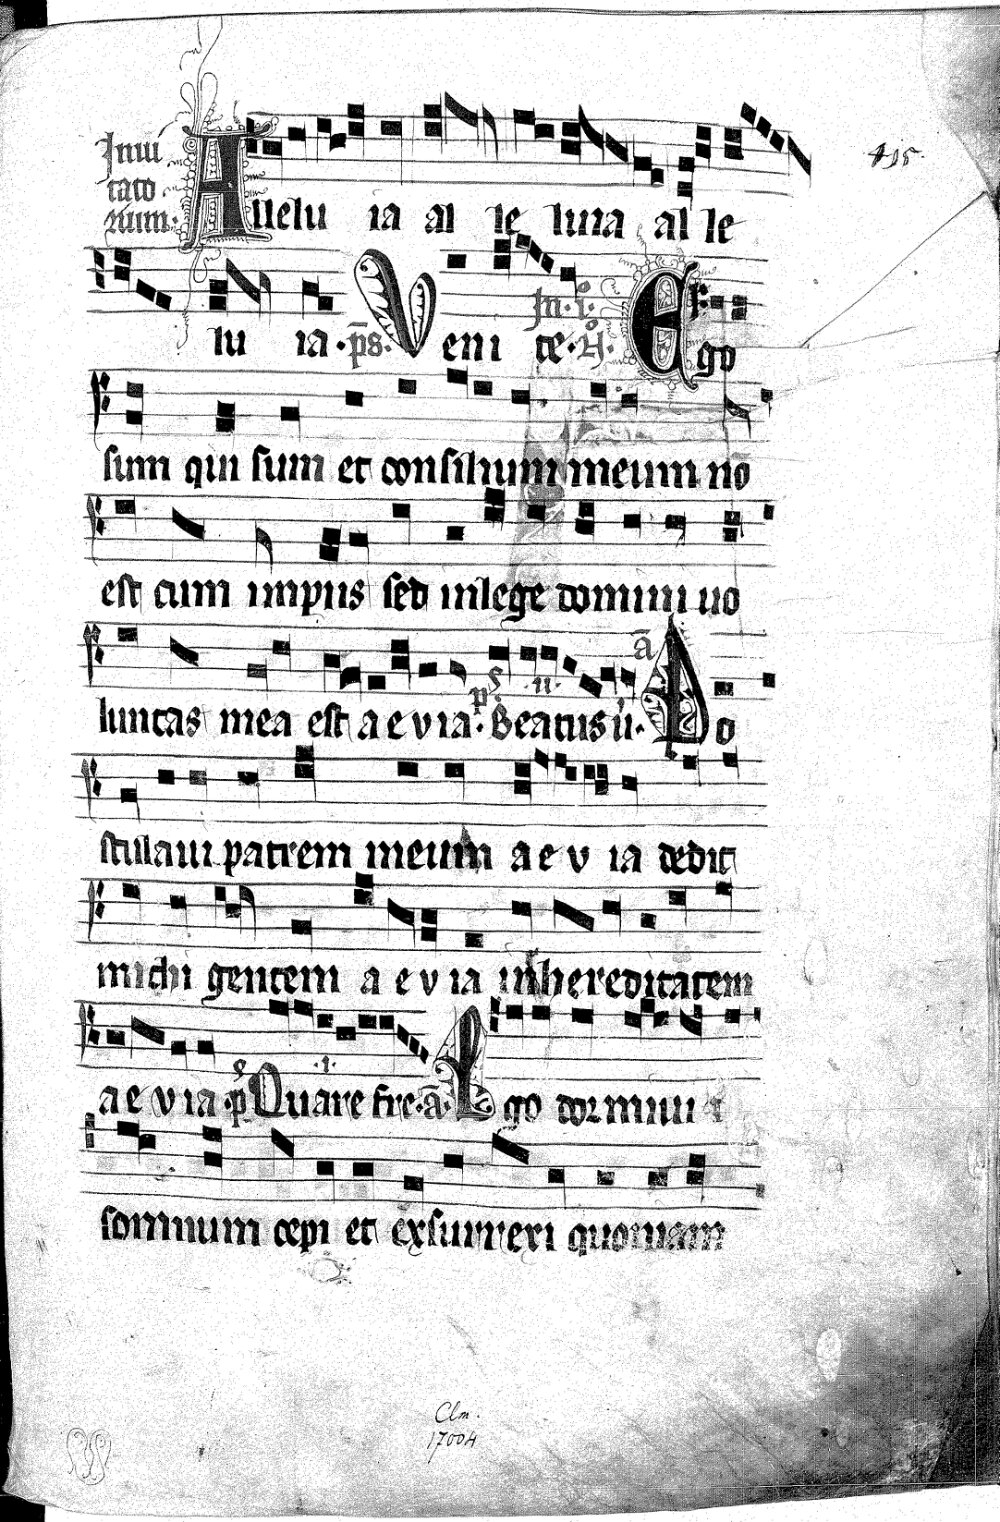 Inui
tato
rium·
Allelu ia al le luia al le
415.
lu ia· p̄s· Veni te· In·i· N̊· Ego
sum qui sum et consilium meum nō
est cum impiis sed in lege domini uo
luntas mea est a e v i a· p̄s Beatus u̇· ii· ā Po
stulaui patrem meum a e v i a dedit
michi gentem a e v i a in hereditatem
a e v i a· p̄s Quare fre· i· ā· Ego dormiui
somnum cepi et exsurrexi quoniam
Clm.
17004